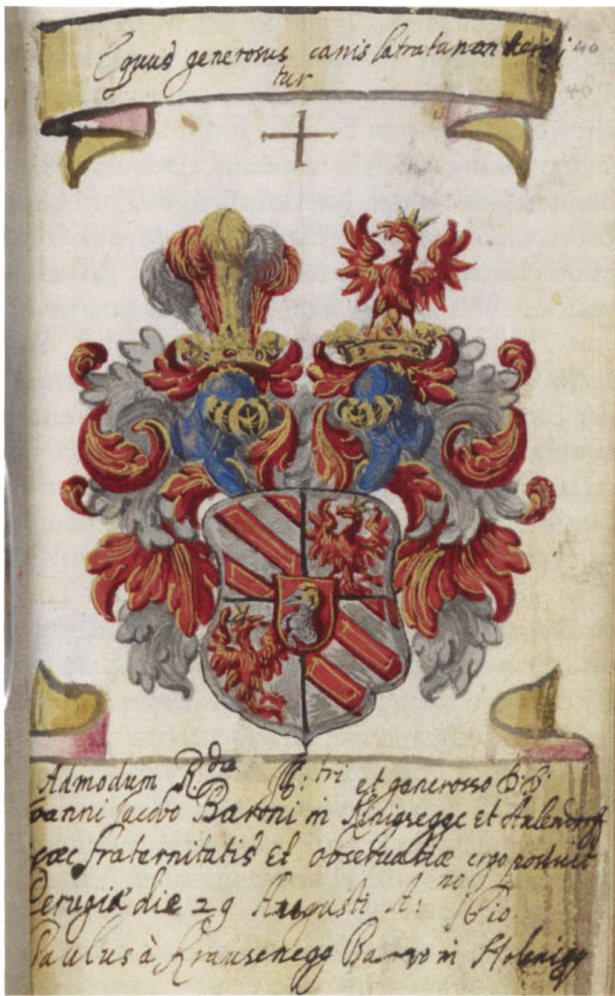 Equus generosus canis latratu non teri
tur
40
40
Admodum R.do Ill:tri et generosso D. D.
oanni Jacobo Baroni in Kinigsegge et Aulendorf
haec fraternitatis et observatiae ergo posuit
Perugiae die 29 Augusti A:no 1610
Paulus à Krausenegg Baro in